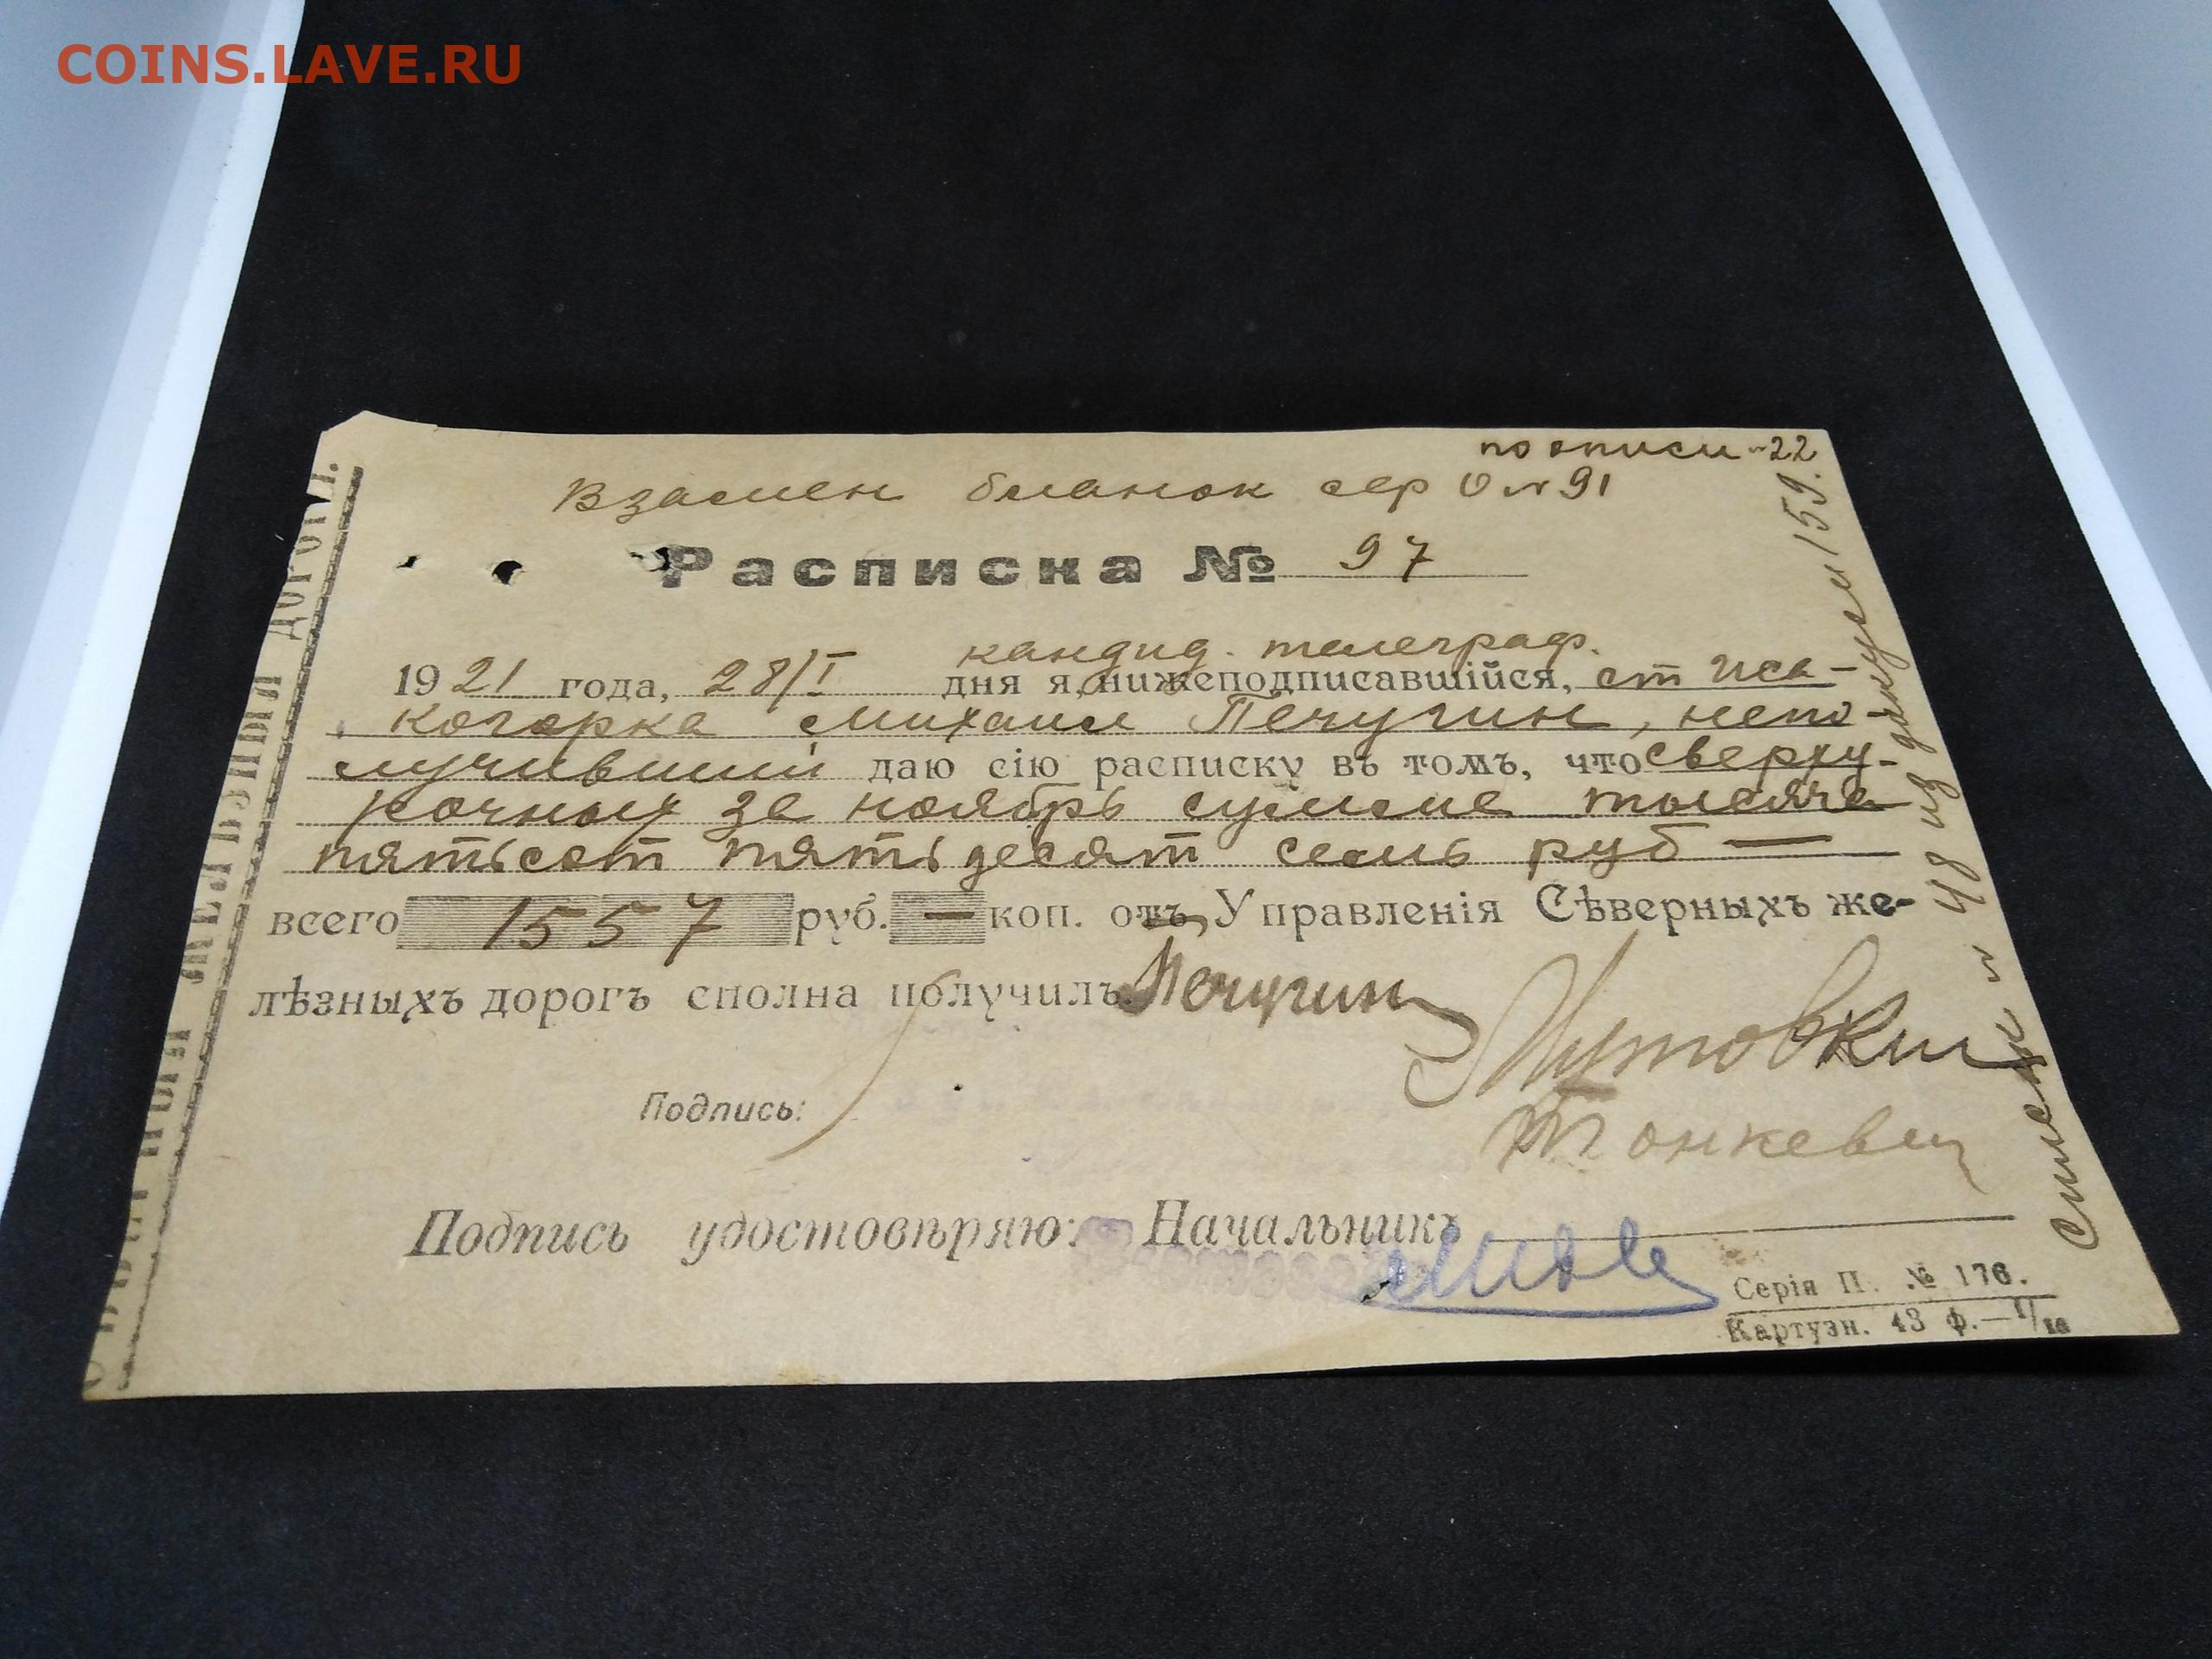 COINS.LAVE.RU
по описи №22
Взамен бланок сер О №91
Расписка № 97
кандид. телеграф.
1921 года, 28/I дня я, нижеподписавшійся, ст Иса-
когорка Михаил Печугин, непо-
лучивший даю сію расписку въ томъ, что сверху-
рочных за ноябрь сумме тысяча
пятьсот пятьдесят семь руб —
всего 1557 руб. — коп. отъ Управленія Сѣверныхъ же-
лѣзныхъ дорогъ сполна получилъ Печугин
Подпись:
Тонкевич
Подпись удостовѣряю: Начальникъ
Серія П. № 176.
Картузн. 43 ф.—
№ 48 из 159.